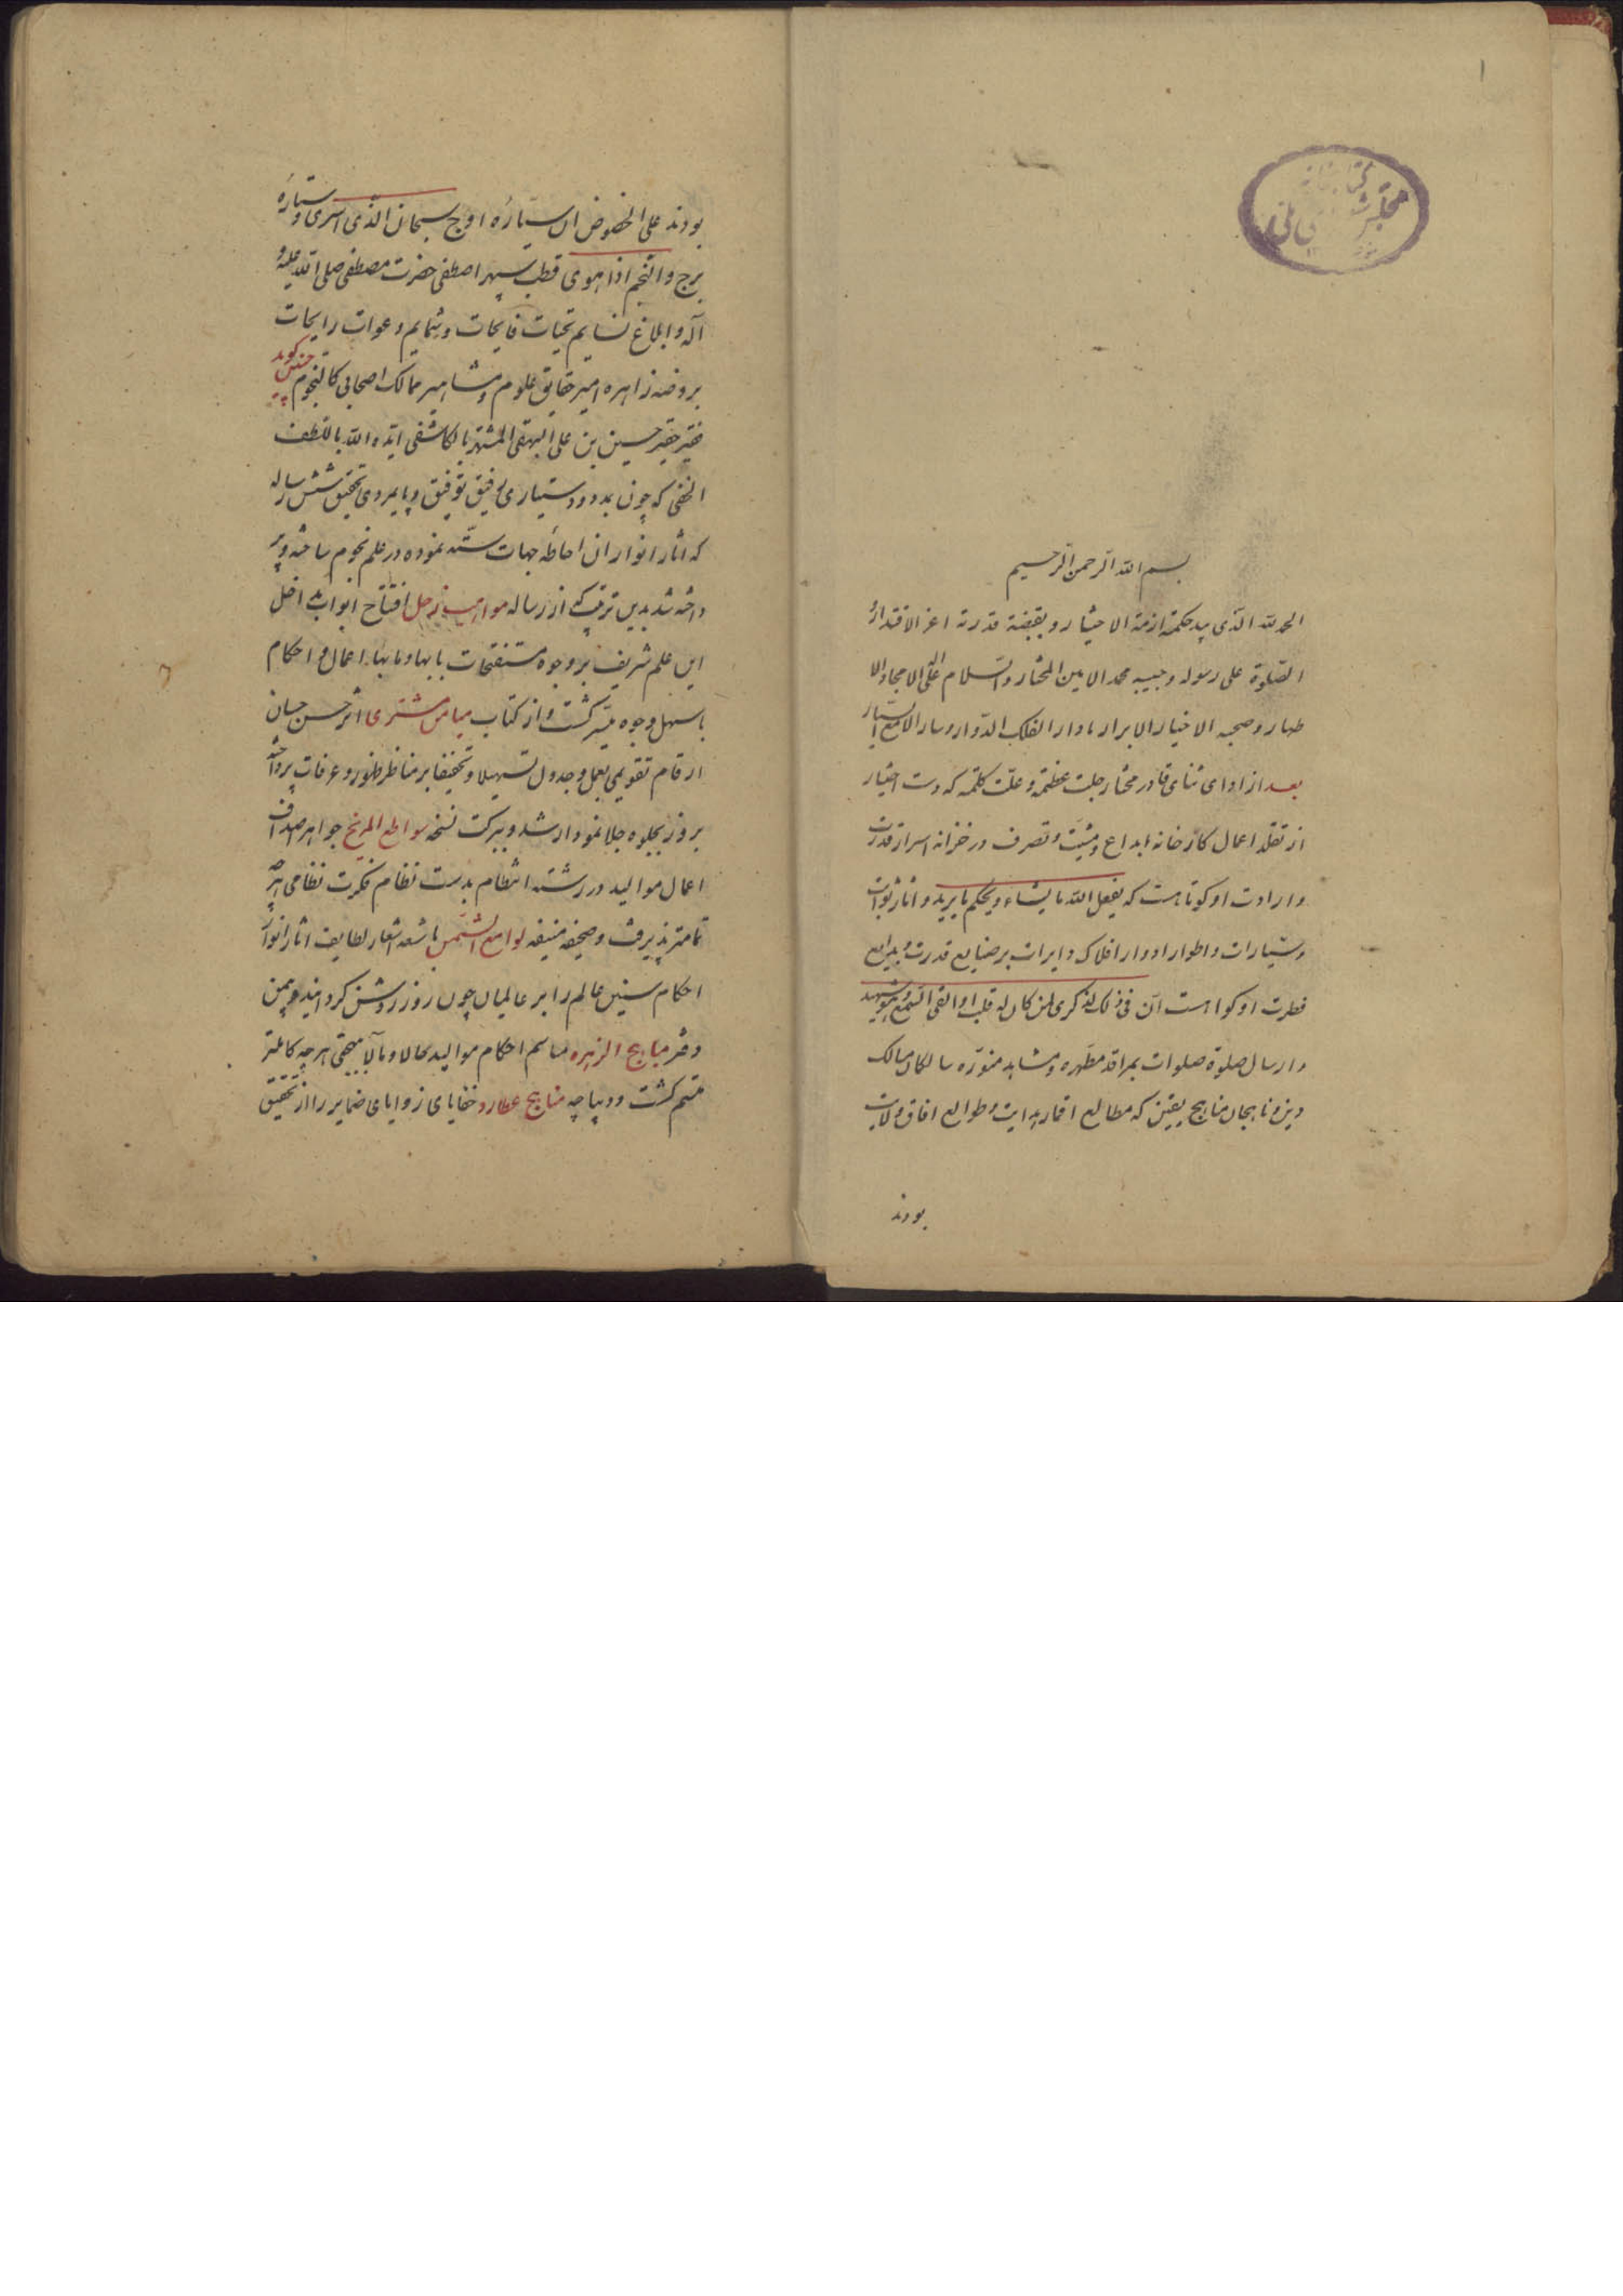 ۱
مجلس شورای ملی
بسم الله الرحمن الرحیم
الحمد لله الذی بید حکمته ازمة الاختیار و بقبضة قدرته اعز الاقتدار
الصلوة علی رسوله و حبیبه محمد الامین المختار والسلام علی آله الامجاد الا
طهار و صحبه الاخیار الابرار مادار الفلک الدوار و سار الانجم السیار
بعد از ادای ثنای قادر مختار جلت عظمته و علت کلمته که دست اختیار
از تقلد اعمال کارخانه ابداع و مشیت و تصرف در خزانه اسرار قدرت
و ارادت او کوتاهست که یفعل الله ما یشاء و یحکم ما یرید و اثار ثوابت
و سیارات و اطوار ادوار افلاک دایرات بر صنایع قدرت و بدایع
فطرت او کواهست آن فی ذلک لذکری لمن کان له قلب او القی السمع و هو شهید
و ارسال صلوة صلوات بمراقد مطهره و مشاهد منوره سالکان مسالک
دین و ناهجان مناهج یقین که مطالع اقمار هدایت و طوالع افاق ولایت
بودند
بودند علی الخصوص ان سیّاره اوج سبحان الذی اسری و ستاره
برج والنجم اذا هوی قطب سپهر اصطفی حضرت مصطفی صلی الله علیه و
آله و ابلاغ نسایم تحیات فایحات و شمایم دعوات رایحات
بروضه زاهره امیر حقایق علوم و مشاهیر ممالک اصحابی کالنجوم چنین کوید
فقیر حقیر حسین بن علی البیهقی المشتهر بالکاشفی ایده الله باللطف
الخفی که چون بمدد و دستیاری رفیق توفیق و پایمردی تحقیق شش رساله
که اثار انوار ان احاطه جهات سته نموده در علم نجوم ساخته و پر
داخته شد بدین ترتیب که از رساله مواهب زحل افتتاح ابواب مداخل
این علم شریف بر وجوه مستفتحات بابها و مابها اعمال و احکام
باسهل وجوه میسر کشت و از کتاب میامن مشتری اثر حسن حسان
ارقام تقویمی بعمل و جدول تسهیلا و تخفیفا بر مناظر ظهور و غرفات پرداخته
بروز بجلوه جلا نمودار شد و ببرکت نسخه سواطع المریخ جواهر اصداف
اعمال موالید در رشته انتظام بدست نظام فکرت نظامی هر چه
تمامتر پذیرفت و صحیفه منیفه لوامع الشمس باشعه اشعار لطایف اثار انوار
احکام سنین عالم را بر عالمیان چون روز روشن کردانید و بیمن
دفتر مباهج الزهره مباسم احکام موالید حالا و مآلا هر چه کاملتر
متسم کشت و دیباچه مناهج عطارد خفایای زوایای ضمایر را از تحقیق